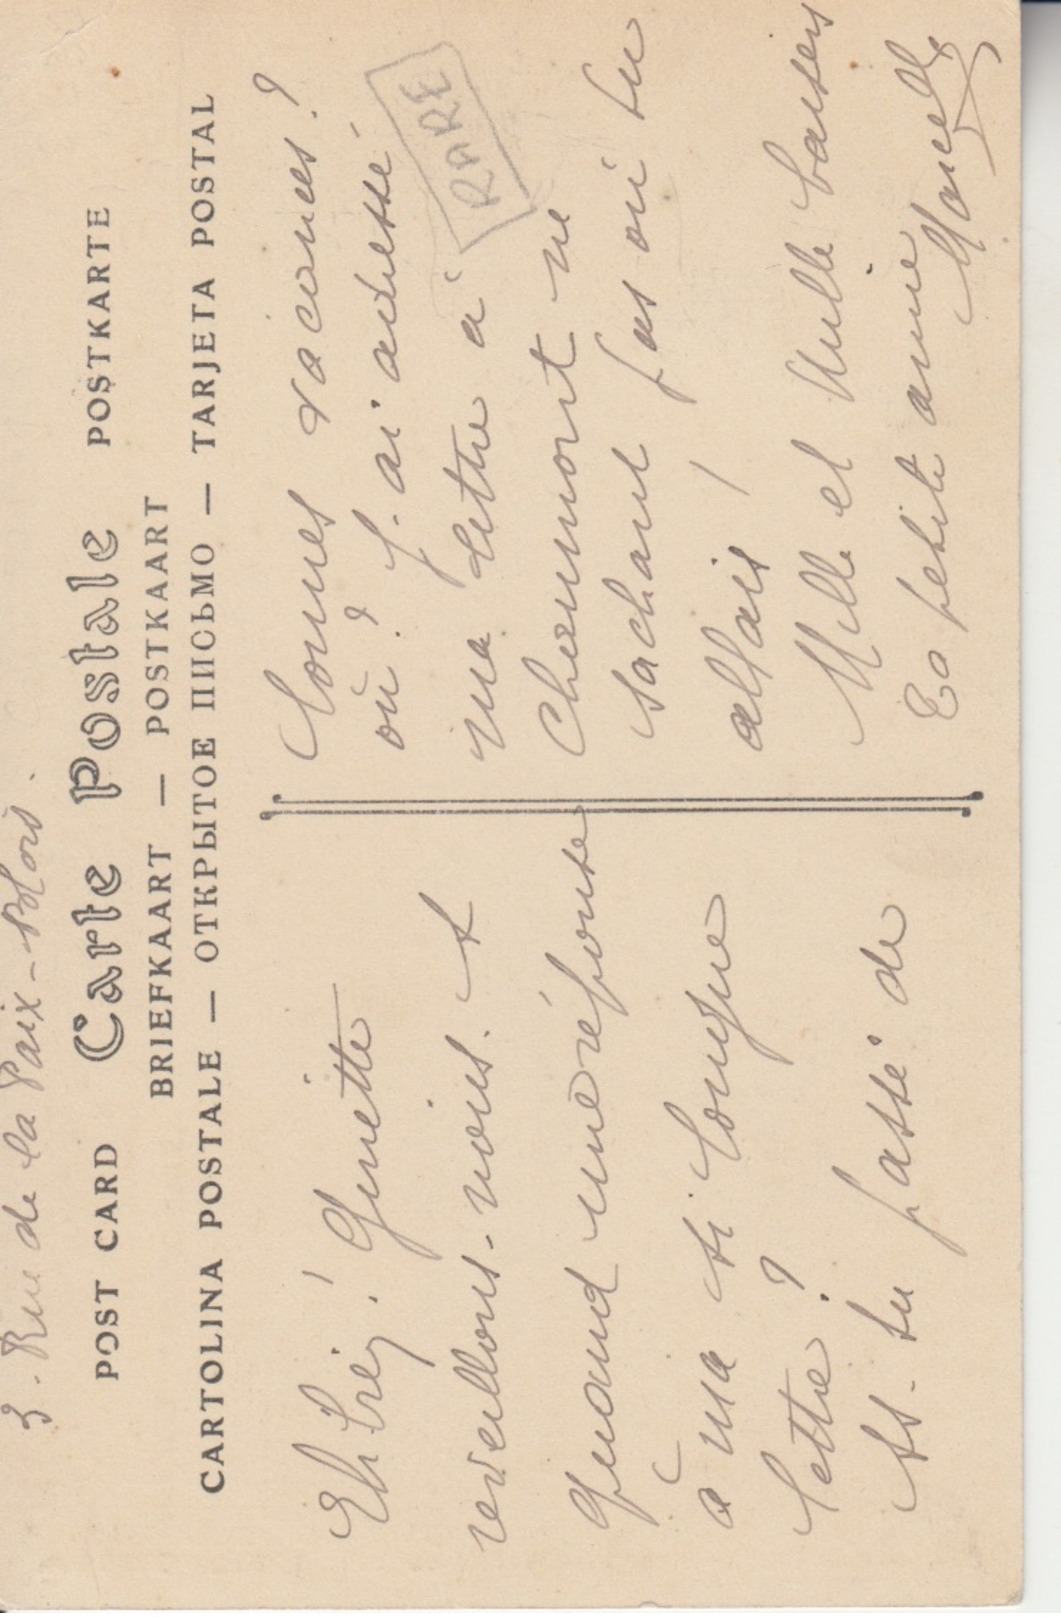 3. Rue de la Paix -
POST CARD Carte Postale POSTKARTE
BRIEFKAART — POSTKAART
CARTOLINA POSTALE — ОТКРЫТОЕ ПИСЬМО — TARJETA POSTAL
Ginette
reveillons-nous. A
quand une réponse
à ma si longue
lettre ?
As-tu passé de
bonnes vacances ?
où ? J'ai adressé
ma lettre à
RARE
Chaumont ne
sachant pas où tu
allais !
Mille et Mille baisers
Ta petite amie
Marcelle